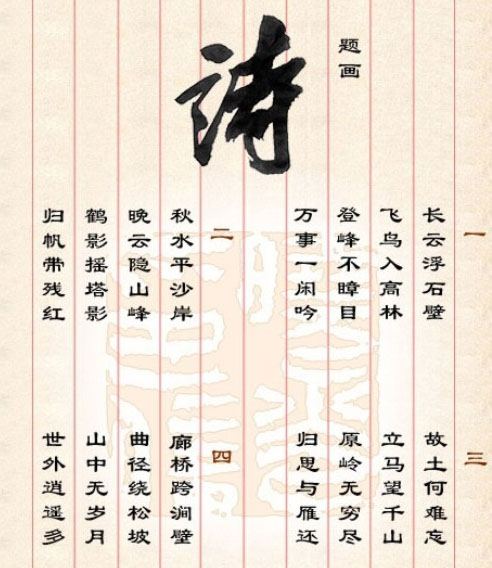 题画
诗
一
长云浮石壁
飞鸟入高林
登峰不瞕目
万事一闲吟
二
秋水平沙岸
晚云隐山峰
鹤影摇塔影
归帆带残红
三
故土何难忘
立马望千山
原岭无穷尽
归思与雁还
四
廊桥跨涧壁
曲径绕松坡
山中无岁月
世外逍遥多